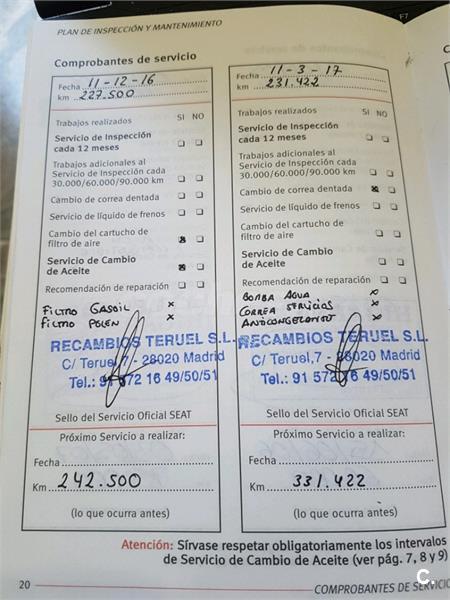 PLAN DE INSPECCIÓN Y MANTENIMIENTO
Comprobantes de servicio
Fecha 11-12-16
km 227.500
Trabajos realizados SI NO
Servicio de Inspección
cada 12 meses
Trabajos adicionales al
Servicio de Inspección cada
30.000/60.000/90.000 km
Cambio de correa dentada
Servicio de líquido de frenos
Cambio del cartucho de
filtro de aire
Servicio de Cambio
de Aceite
Recomendación de reparación
FILTRO GASOIL x
FILTRO POLEN x
RECAMBIOS TERUEL S.L.
C/ Teruel,7 - 28020 Madrid
Tel.: 91 572 16 49/50/51
Sello del Servicio Oficial SEAT
Próximo Servicio a realizar:
Fecha
Km 242.500
(lo que ocurra antes)
Fecha 11-3-17
km 231.422
Trabajos realizados SI NO
Servicio de Inspección
cada 12 meses
Trabajos adicionales al
Servicio de Inspección cada
30.000/60.000/90.000 km
Cambio de correa dentada
Servicio de líquido de frenos
Cambio del cartucho de
filtro de aire
Servicio de Cambio
de Aceite
Recomendación de reparación
BOMBA AGUA x
CORREA SERVICIOS x
x
RECAMBIOS TERUEL S.L.
C/ Teruel,7 - 28020 Madrid
Tel.: 91 572 16 49/50/51
Sello del Servicio Oficial SEAT
Próximo Servicio a realizar:
Fecha
Km 331.422
(lo que ocurra antes)
Atención: Sírvase respetar obligatoriamente los intervalos
de Servicio de Cambio de Aceite (ver pág. 7, 8 y 9)
20
COMPROBANTES DE SERVICIO
C.
F7